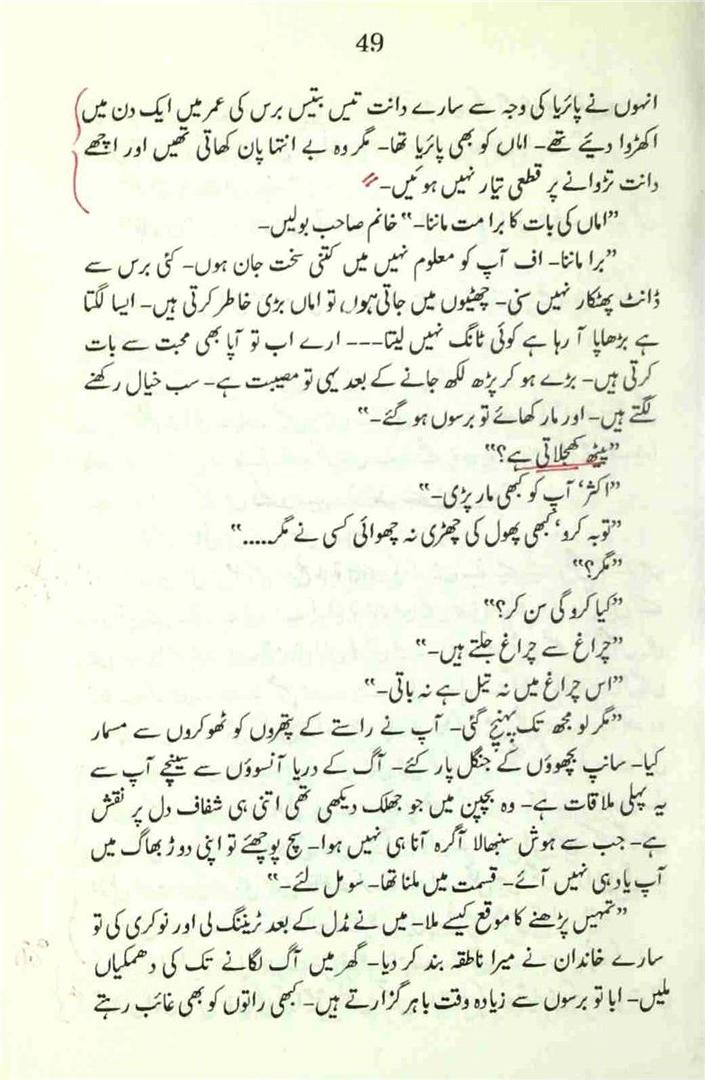 49
انہوں نے پائریا کی وجہ سے سارے دانت تیس بتیس برس کی عمر میں ایک دن میں
اکھڑوا دیئے تھے۔ اماں کو بھی پائریا تھا۔ مگر وہ بے انتہا پان کھاتی تھیں اور اچھے
دانت تڑوانے پر قطعی تیار نہیں ہوئیں۔
”اماں کی بات کا برا مت ماننا۔“ خانم صاحب بولیں۔
”برا ماننا۔ اف آپ کو معلوم نہیں میں کتنی سخت جان ہوں۔ کئی برس سے
ڈانٹ پھٹکار نہیں سنی۔ چھٹیوں میں جاتی ہوں تو اماں بڑی خاطر کرتی ہیں۔ ایسا لگتا
ہے بڑھاپا آ رہا ہے کوئی ٹانگ نہیں لیتا۔۔۔ ارے اب تو آپا بھی محبت سے بات
کرتی ہیں۔ بڑے ہو کر پڑھ لکھ جانے کے بعد یہی تو مصیبت ہے۔ سب خیال رکھنے
لگتے ہیں۔ اور مار کھائے تو برسوں ہو گئے۔“
”پیٹھ کھجلاتی ہے؟“
”اکثر، آپ کو کبھی مار پڑی۔“
”توبہ کرو، کبھی پھول کی چھڑی نہ چھوائی کسی نے مگر.....“
”مگر؟“
”کیا کرو گی سن کر؟“
”چراغ سے چراغ جلتے ہیں۔“
”اس چراغ میں نہ تیل ہے نہ باتی۔“
”مگر لو مجھ تک پہنچ گئی۔ آپ نے راستے کے پتھروں کو ٹھوکروں سے مسمار
کیا۔ سانپ بچھوؤں کے جنگل پار کئے۔ آگ کے دریا آنسوؤں سے سینچے آپ سے
یہ پہلی ملاقات ہے۔ وہ بچپن میں جو جھلک دیکھی تھی اتنی ہی شفاف دل پر نقش
ہے۔ جب سے ہوش سنبھالا آگرہ آنا ہی نہیں ہوا۔ سچ پوچھئے تو اپنی دوڑ بھاگ میں
آپ یاد ہی نہیں آئے۔ قسمت میں ملنا تھا۔ سو مل لئے۔“
”تمہیں پڑھنے کا موقع کیسے ملا۔ میں نے مڈل کے بعد ٹریننگ لی اور نوکری کی تو
سارے خاندان نے میرا ناطقہ بند کر دیا۔ گھر میں آگ لگانے تک کی دھمکیاں
ملیں۔ ابا تو برسوں سے زیادہ وقت باہر گزارتے ہیں۔ کبھی راتوں کو بھی غائب رہتے